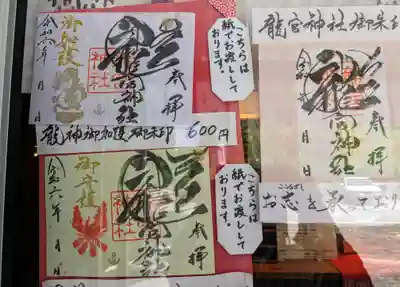 御加護
令和六年 月 日
龍宮神社
奉拝
こちらは
紙でお渡しして
おります。
龍神御加護御朱印 600円
御加護
令和六年 月 日
龍宮神社
奉拝
こちらは
紙でお渡しして
おります。
龍宮神社御朱印
龍宮神社
奉拝
月 日
お志を